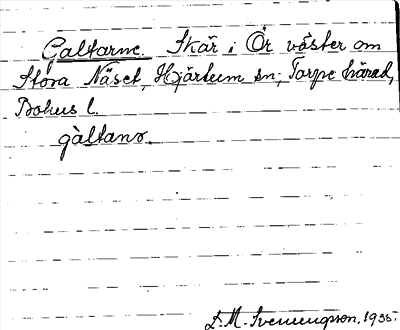 Galtarne. Skär i Ör väster om
Stora Näset, Hjärtum sn; Torpe härad,
Bohus l.
gàltanɷ.
S. M. Svenungsson, 1935.